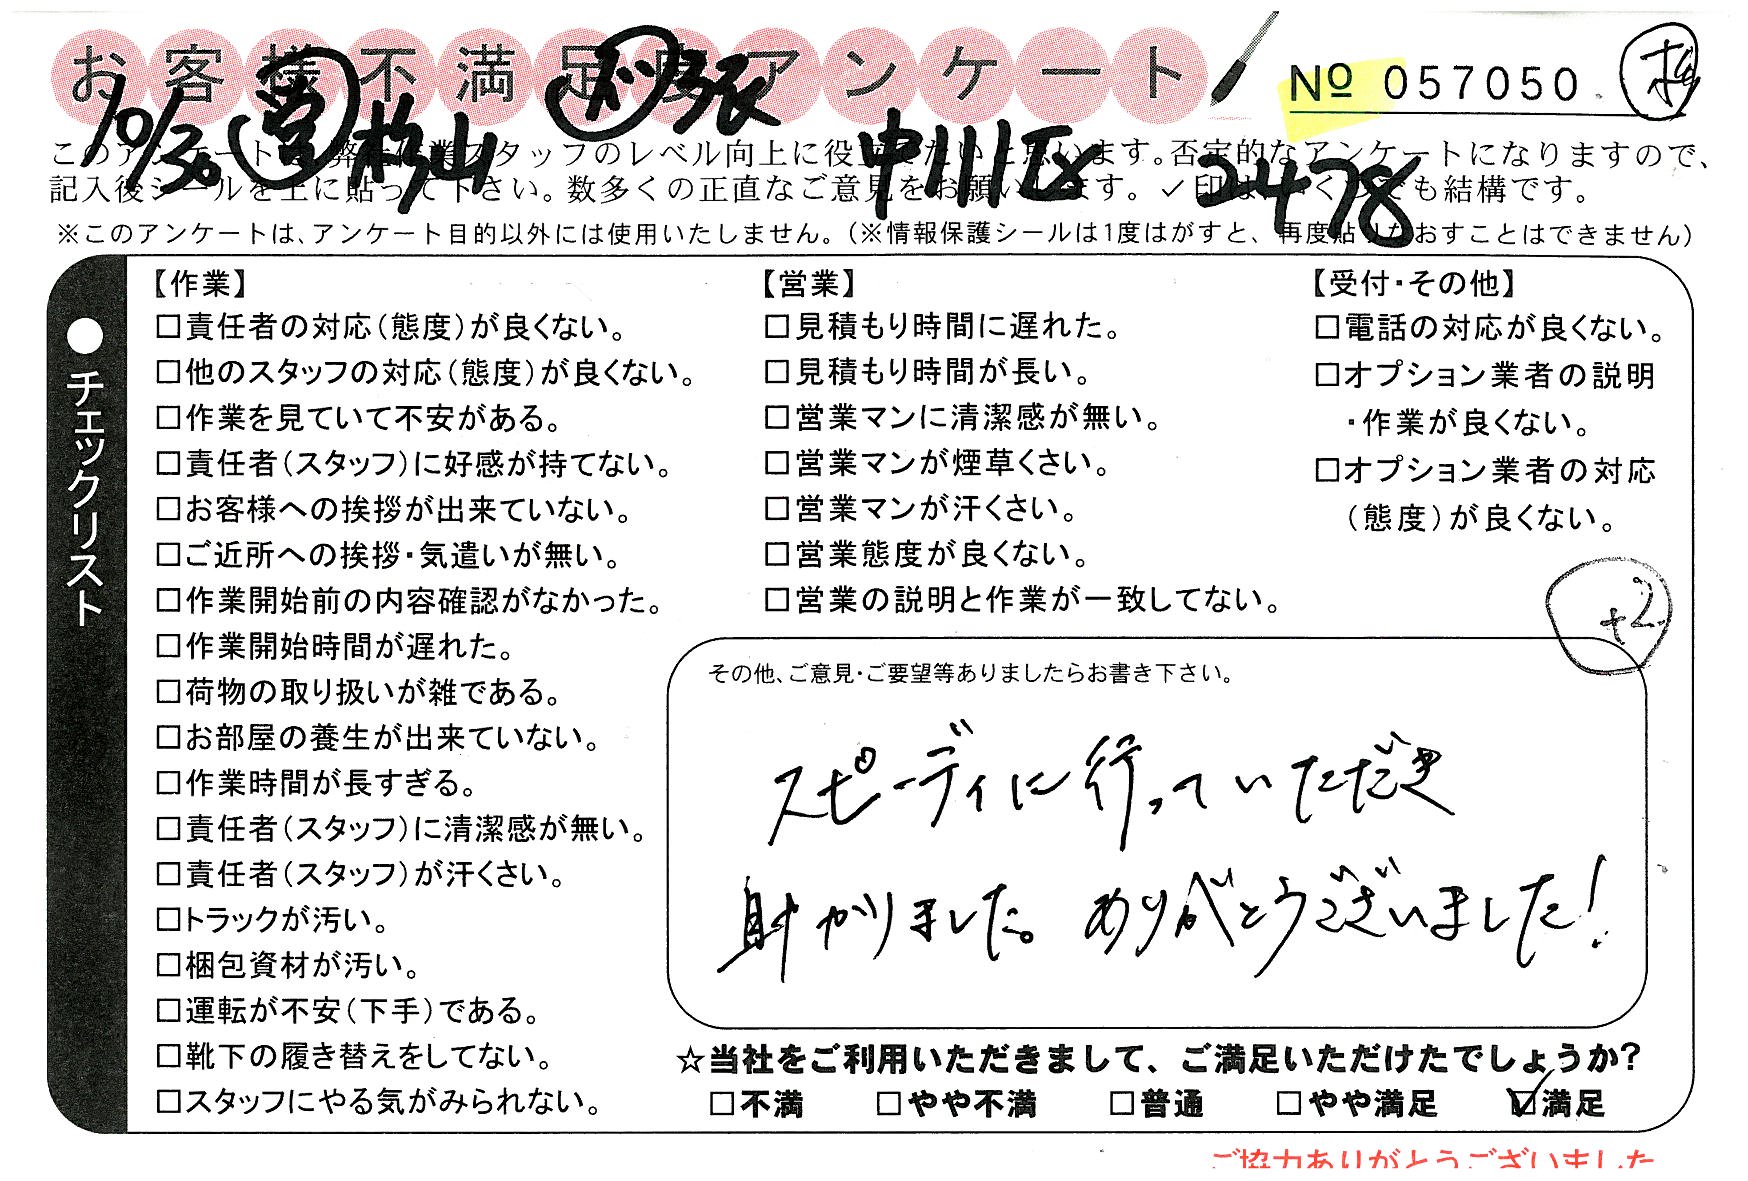 お客様不満足度アンケート
№ 057050
10/30 営 杉山 中川区 2478
このアンケートは、弊社作業スタッフのレベル向上に役立てたいと思います。否定的なアンケートになりますので、
記入後シールを上に貼って下さい。数多くの正直なご意見をお願いします。✓印はいくつでも結構です。
※このアンケートは、アンケート目的以外には使用いたしません。(※情報保護シールは1度はがすと、再度貼りなおすことはできません)
●チェックリスト
【作業】
□責任者の対応(態度)が良くない。
□他のスタッフの対応(態度)が良くない。
□作業を見ていて不安がある。
□責任者(スタッフ)に好感が持てない。
□お客様への挨拶が出来ていない。
□ご近所への挨拶・気遣いが無い。
□作業開始前の内容確認がなかった。
□作業開始時間が遅れた。
□荷物の取り扱いが雑である。
□お部屋の養生が出来ていない。
□作業時間が長すぎる。
□責任者(スタッフ)に清潔感が無い。
□責任者(スタッフ)が汗くさい。
□トラックが汚い。
□梱包資材が汚い。
□運転が不安(下手)である。
□靴下の履き替えをしてない。
□スタッフにやる気がみられない。
【営業】
□見積もり時間に遅れた。
□見積もり時間が長い。
□営業マンに清潔感が無い。
□営業マンが煙草くさい。
□営業マンが汗くさい。
□営業態度が良くない。
□営業の説明と作業が一致してない。
【受付・その他】
□電話の対応が良くない。
□オプション業者の説明
・作業が良くない。
□オプション業者の対応
(態度)が良くない。
+2
その他、ご意見・ご要望等ありましたらお書き下さい。
スピーディに行っていただき
助かりました。ありがとうございました!
☆当社をご利用いただきまして、ご満足いただけたでしょうか?
□不満 □やや不満 □普通 □やや満足 ☑満足
ご協力ありがとうございました